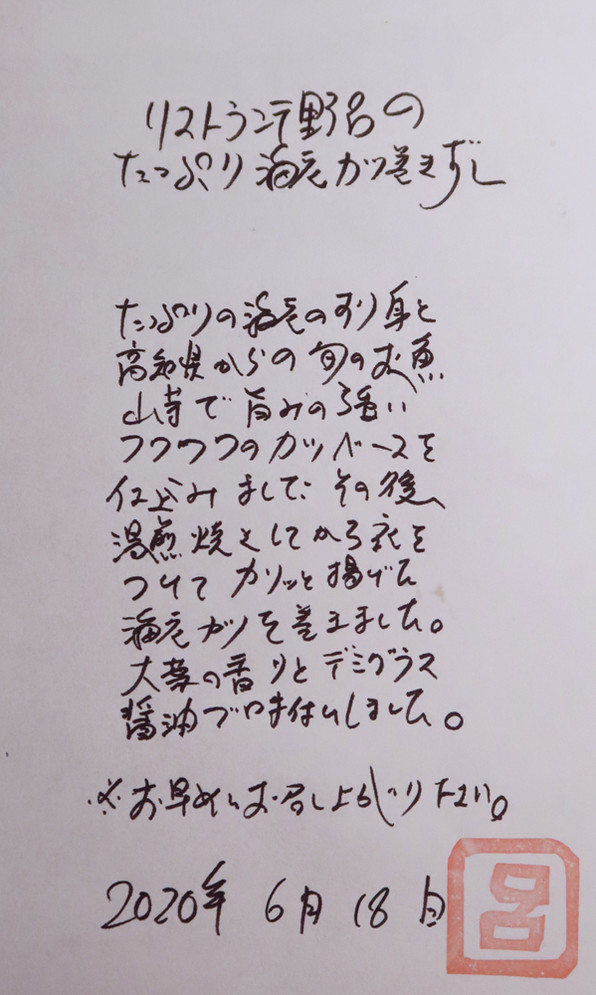 リストランテ野呂の
たっぷり海老カツ巻きずし
たっぷりの海老のすり身と
高知県からの旬のお魚
山芋で旨みの強い
フワフワのカツベースを
仕込みました その後、
湯煎焼きしてから衣を
つけて カリッと揚げた
海老カツを巻きました。
大葉の香りと デミグラス
醤油で味付けしました。
※お早めにお召し上がり下さい。
2020年 6月 18日
呂